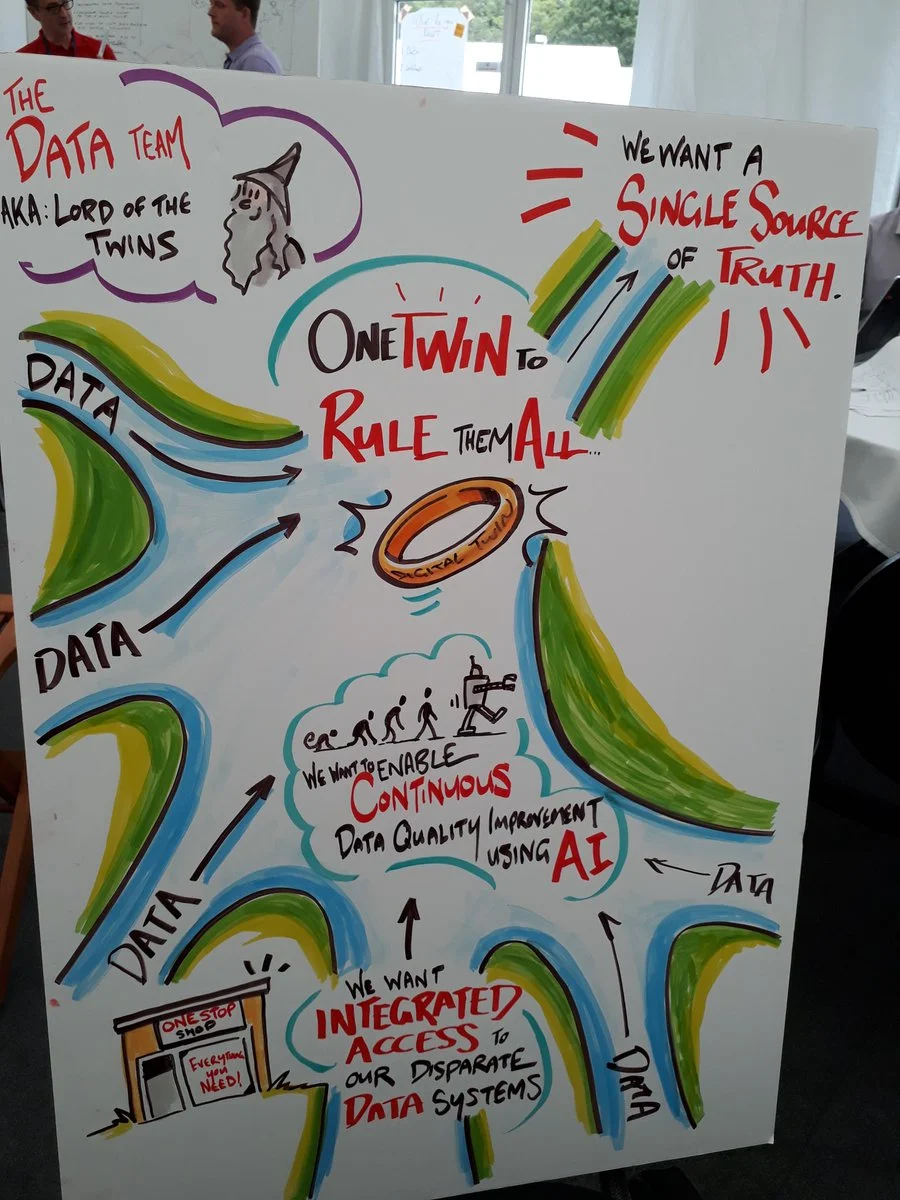 THE
DATA TEAM
AKA: LORD OF THE
TWINS
WE WANT A
SINGLE SOURCE
OF TRUTH.
ONE TWIN TO
RULE THEM ALL...
DATA
DIGITAL TWIN
DATA
WE WANT TO ENABLE
CONTINUOUS
DATA QUALITY IMPROVEMENT
USING AI
DATA
DATA
WE WANT
INTEGRATED
ACCESS TO
OUR DISPARATE
DATA SYSTEMS
DATA
ONE STOP
SHOP
EVERYTHING
YOU
NEED!